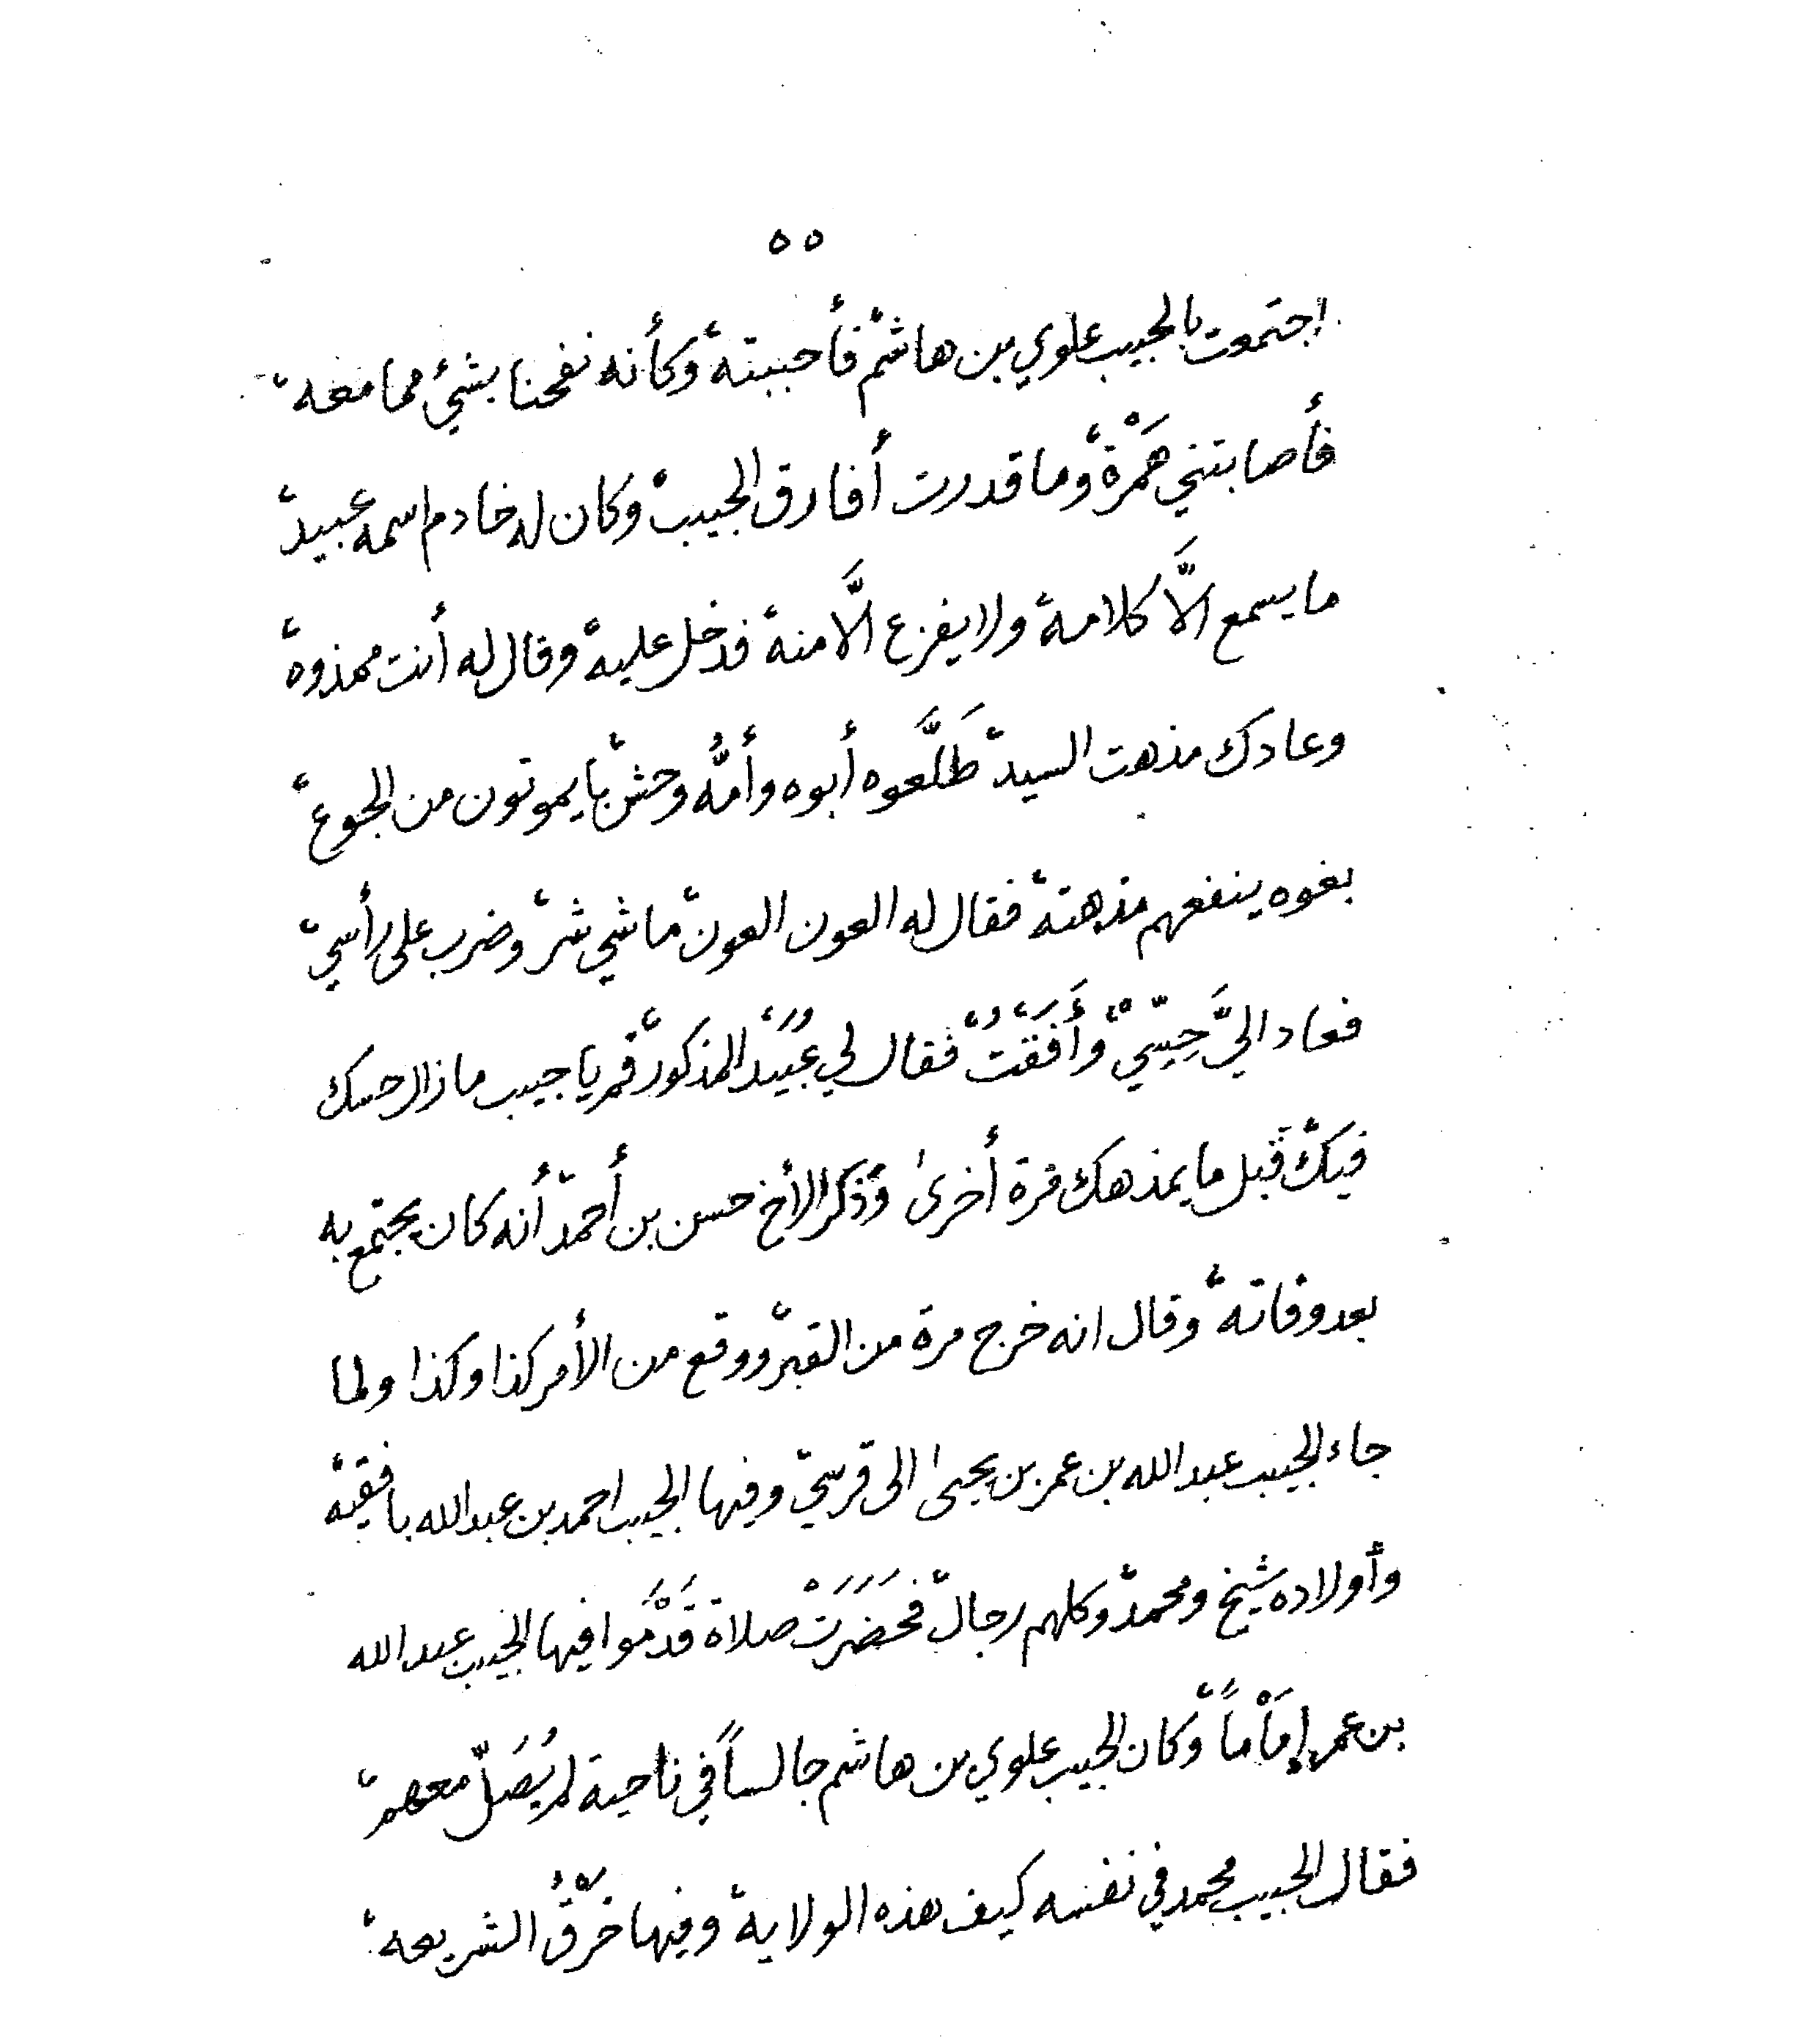 ٥٥
اجتمعت بالحبيب علوي بن هاشم، فأحببته، وكأنه نفحنا بشئ مما معه،
فأصابتني هَمْزة، وما قدرت أفارق الحبيب، وكان له خادم اسمه عبيد،
ما يسمع الَّا كلامه، ولا يفزع الَّا منه، فدخل عليه، وقال له أنت ممذوه،
وعادك مذهت السيد، طَلَّعوه أبوه وأمُّه وحش، با يموتون من الجوع،
بغوه ينفعهم، مذهته، فقال له العون العون، ما شي شر، وضرب على رأسي،
فعاد اليَّ حِسّي، وأَفَقْتُ، فقال لي عُبَيْد المذكور، قم يا حبيب ما زال حسك
فيك، قبل ما يمذهك مرة أخرىٰ، وذكر الأخ حسن بن أحمد، أنه كان يجتمع به
بعد وفاته، وقال انه خرج مرة من القبر، ووقع من الأمر كذا وكذا ولما
جاء الحبيب عبد الله بن عمر بن يحيىٰ الى قرسي، وفيها الحبيب احمد بن عبد الله بافقيه،
وأولاده شيخ ومحمد، وكلهم رجال، فحَضَرَتْ صلاة قَدَّمُوا فيها الحبيب عبد الله
بن عمر إمَاماً، وكان الحبيب علوي بن هاشم جالساً في ناحية لم يُصَلّ معهم،
فقال الحبيب محمد في نفسه كيف هذه الولاية، وفيها خَرْقُ الشريعه،